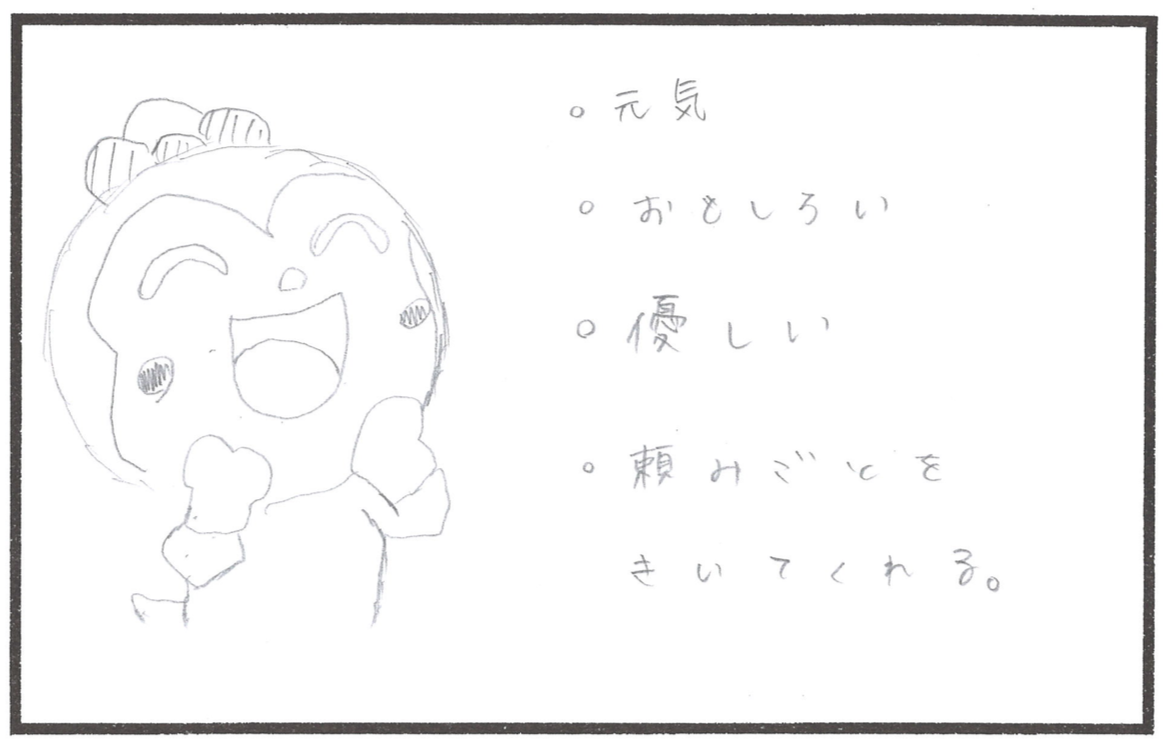 ○ 元気
○ おもしろい
○ 優しい
○ 頼みごとを
きいてくれる。